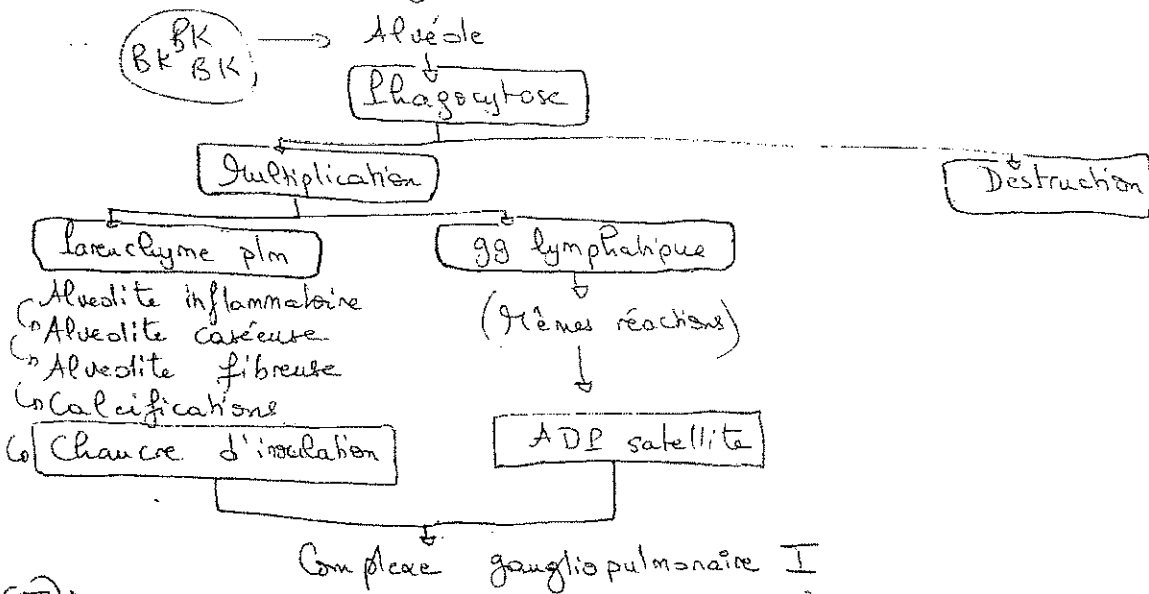 BK BK BK → Alvéole
Phagocytose
Multiplication Destruction
Parenchyme plm gg lymphatique
Alvéolite inflammatoire (Mêmes réactions)
Alvéolite caséeuse
Alvéolite fibreuse
Calcifications
Chancre d'inoculation ADP satellite
Complexe gangliopulmonaire I